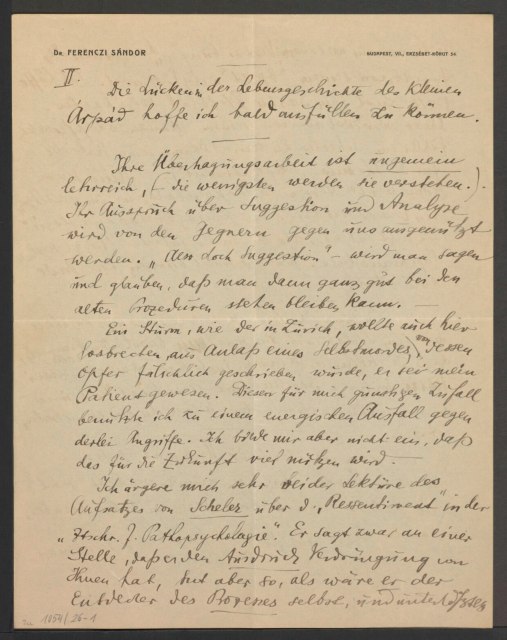 Dr. FERENCZI SÁNDOR
BUDAPEST, VII., ERZSÉBET-KÖRUT 54.
II.
Die Lücken in der Lebensgeschichte des kleinen
Árpád hoffe ich bald ausfüllen zu können.
Ihre Übertragungsarbeit ist ungemein
lehrreich, (– die wenigsten werden sie verstehen.).
Ihr Ausspruch über Suggestion und Analyse
wird von den Gegnern gegen uns ausgenützt
werden. „Also doch Suggestion" – wird man sagen
und glauben, daß man dann ganz gut bei den
alten Prozeduren stehen bleiben kann. —
Ein Sturm, wie der in Zürich, wollte auch hier
losbrechen, aus Anlaß eines Selbstmordes, von dessen
Opfer fälschlich geschrieben wurde, er sei mein
Patient gewesen. Diesen für mich günstigen Zufall
benutzte ich zu einem energischen Ausfall gegen
derlei Angriffe. Ich bilde mir aber nicht ein, daß
das für die Zukunft viel nützen wird. —
Ich ärgere mich sehr bei der Lektüre des
Aufsatzes von Scheler über d. „Ressentiment" in der
„Ztschr. f. Pathopsychologie". Er sagt zwar an einer
Stelle, daß er den Ausdruck Verdrängung von
Ihnen hat, tut aber so, als wäre er der
Entdecker des Prozesses selbst, und unterläßt es,
1054/26-1